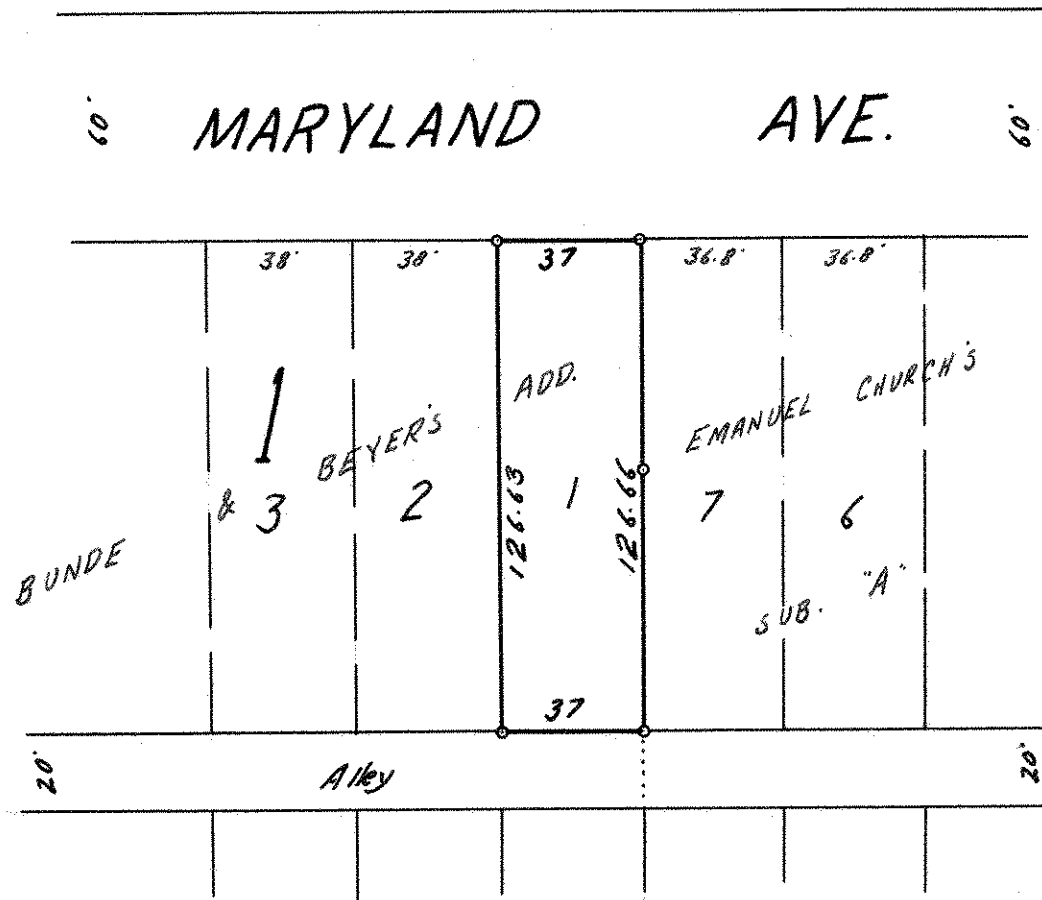 60'
MARYLAND AVE.
60'
38'
38'
37
36.8'
36.8'
1
BUNDE & BEYER'S ADD.
EMANUEL CHURCH'S
SUB. "A"
3
2
1
7
6
126.63
126.66
37
20'
Alley
20'